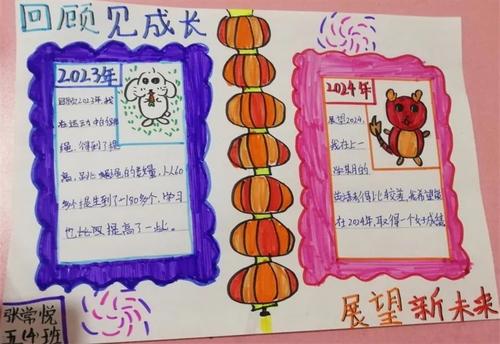 回顾见成长
2023年
回顾2023年,我
在运动中的
提,得到了提
高,跳绳的数量,从60
多个提生到了一190多个,学习
也比以提高了一些。
2024年
展望2024,
我在上一
期的
考得比较差,我希望能
在2024年,取得一个好成绩
展望新未来
张常悦
五(4)班